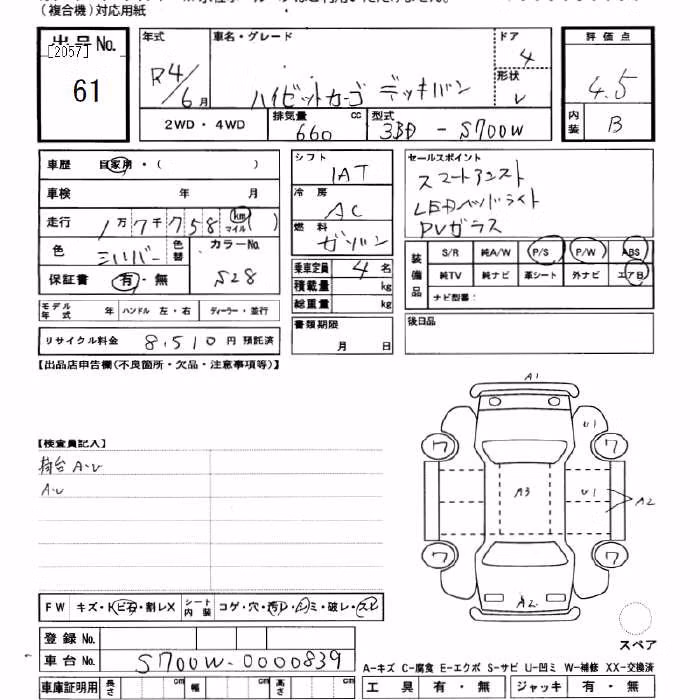 (複合機)対応用紙
出品No.
[2057]
61
年式
R4/6月
車名・グレード
ハイゼットカーゴ デッキバン
ドア
4
形状
V
評価点
4.5
内装
B
2WD・4WD
排気量
660
cc
型式
3BD-S700W
車歴 自家用・( )
車検 年 月
走行 1万7千758 km マイル( )
色 シルバー 色替
カラーNo.
S28
保証書 有・無
シフト
IAT
冷房
AC
燃料
ガソリン
乗車定員 4 名
積載量 kg
総重量 kg
書類期限
月 日
セールスポイント
スマートアシスト
LEDヘッドライト
PVガラス
装備品
S/R 純A/W P/S P/W ABS
純TV 純ナビ 革シート 外ナビ エアB
ナビ型番:
後日品
モデル年式 年 ハンドル 左・右 ディーラー・並行
リサイクル料金 8,510 円 預託済
【出品店申告欄(不良箇所・欠品・注意事項等)】
【検査員記入】
荷台 A・U
A・U
A1
U1
ワ ワ
A3 U1 A2
ワ ワ
A2
スペア
FW キズ・ 割レX シート内装 コゲ・穴・汚レ・ 破レ・スレ
登録No.
車台No. S700W-0000839
車庫証明用 長さ cm 幅 cm 高さ cm
A-キズ C-腐食 E-エクボ S-サビ U-凹ミ W-補修 XX-交換済
工具 有・無 ジャッキ 有・無